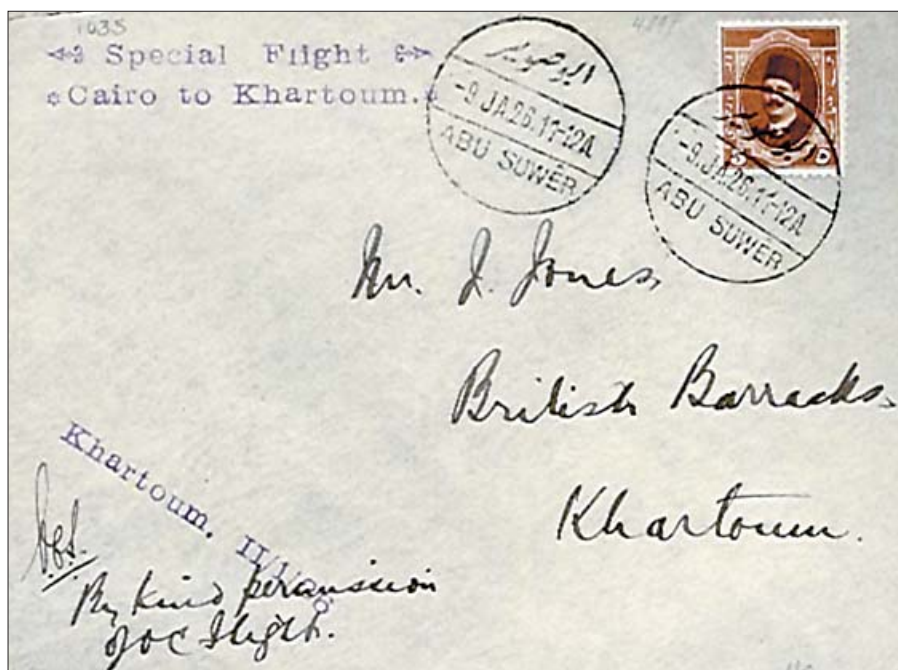 1035
Special Flight
Cairo to Khartoum.
ابو صوير
-9 JA.26.11-12A
ABU SUWÈR
-9 JA.26.11-12A
ABU SUWÈR
5 ٥
Mr. J. Jones,
British Barracks,
Khartoum.
Khartoum.
By kind permission
of OC Flight.